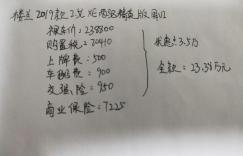 楼兰 2019款 2.5L XE 两驱精英版 国VI
裸车价：238800
购置税：20410
上牌费：500
车船费：900
交强险：950
商业保险：7225
优惠：3.5万
全款：23.38万元